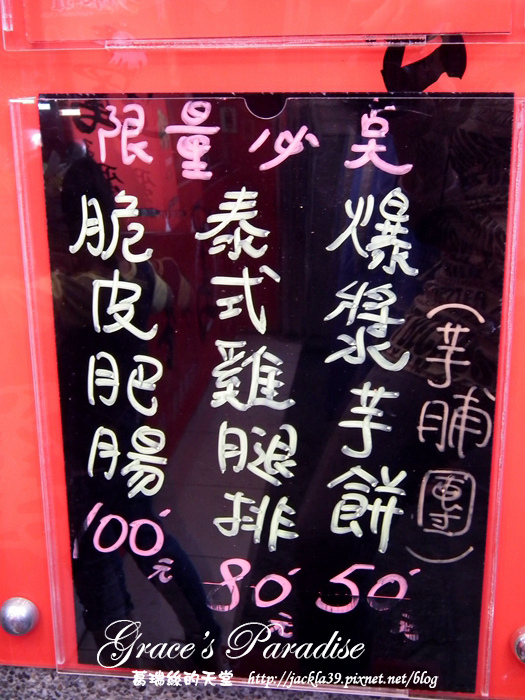 限量必點
爆漿芋餅
(芋脯團)
50元
泰式雞腿排
80元
脆皮肥腸
100元
Grace's Paradise
葛瑞絲的天堂 http://jackla39.pixnet.net/blog